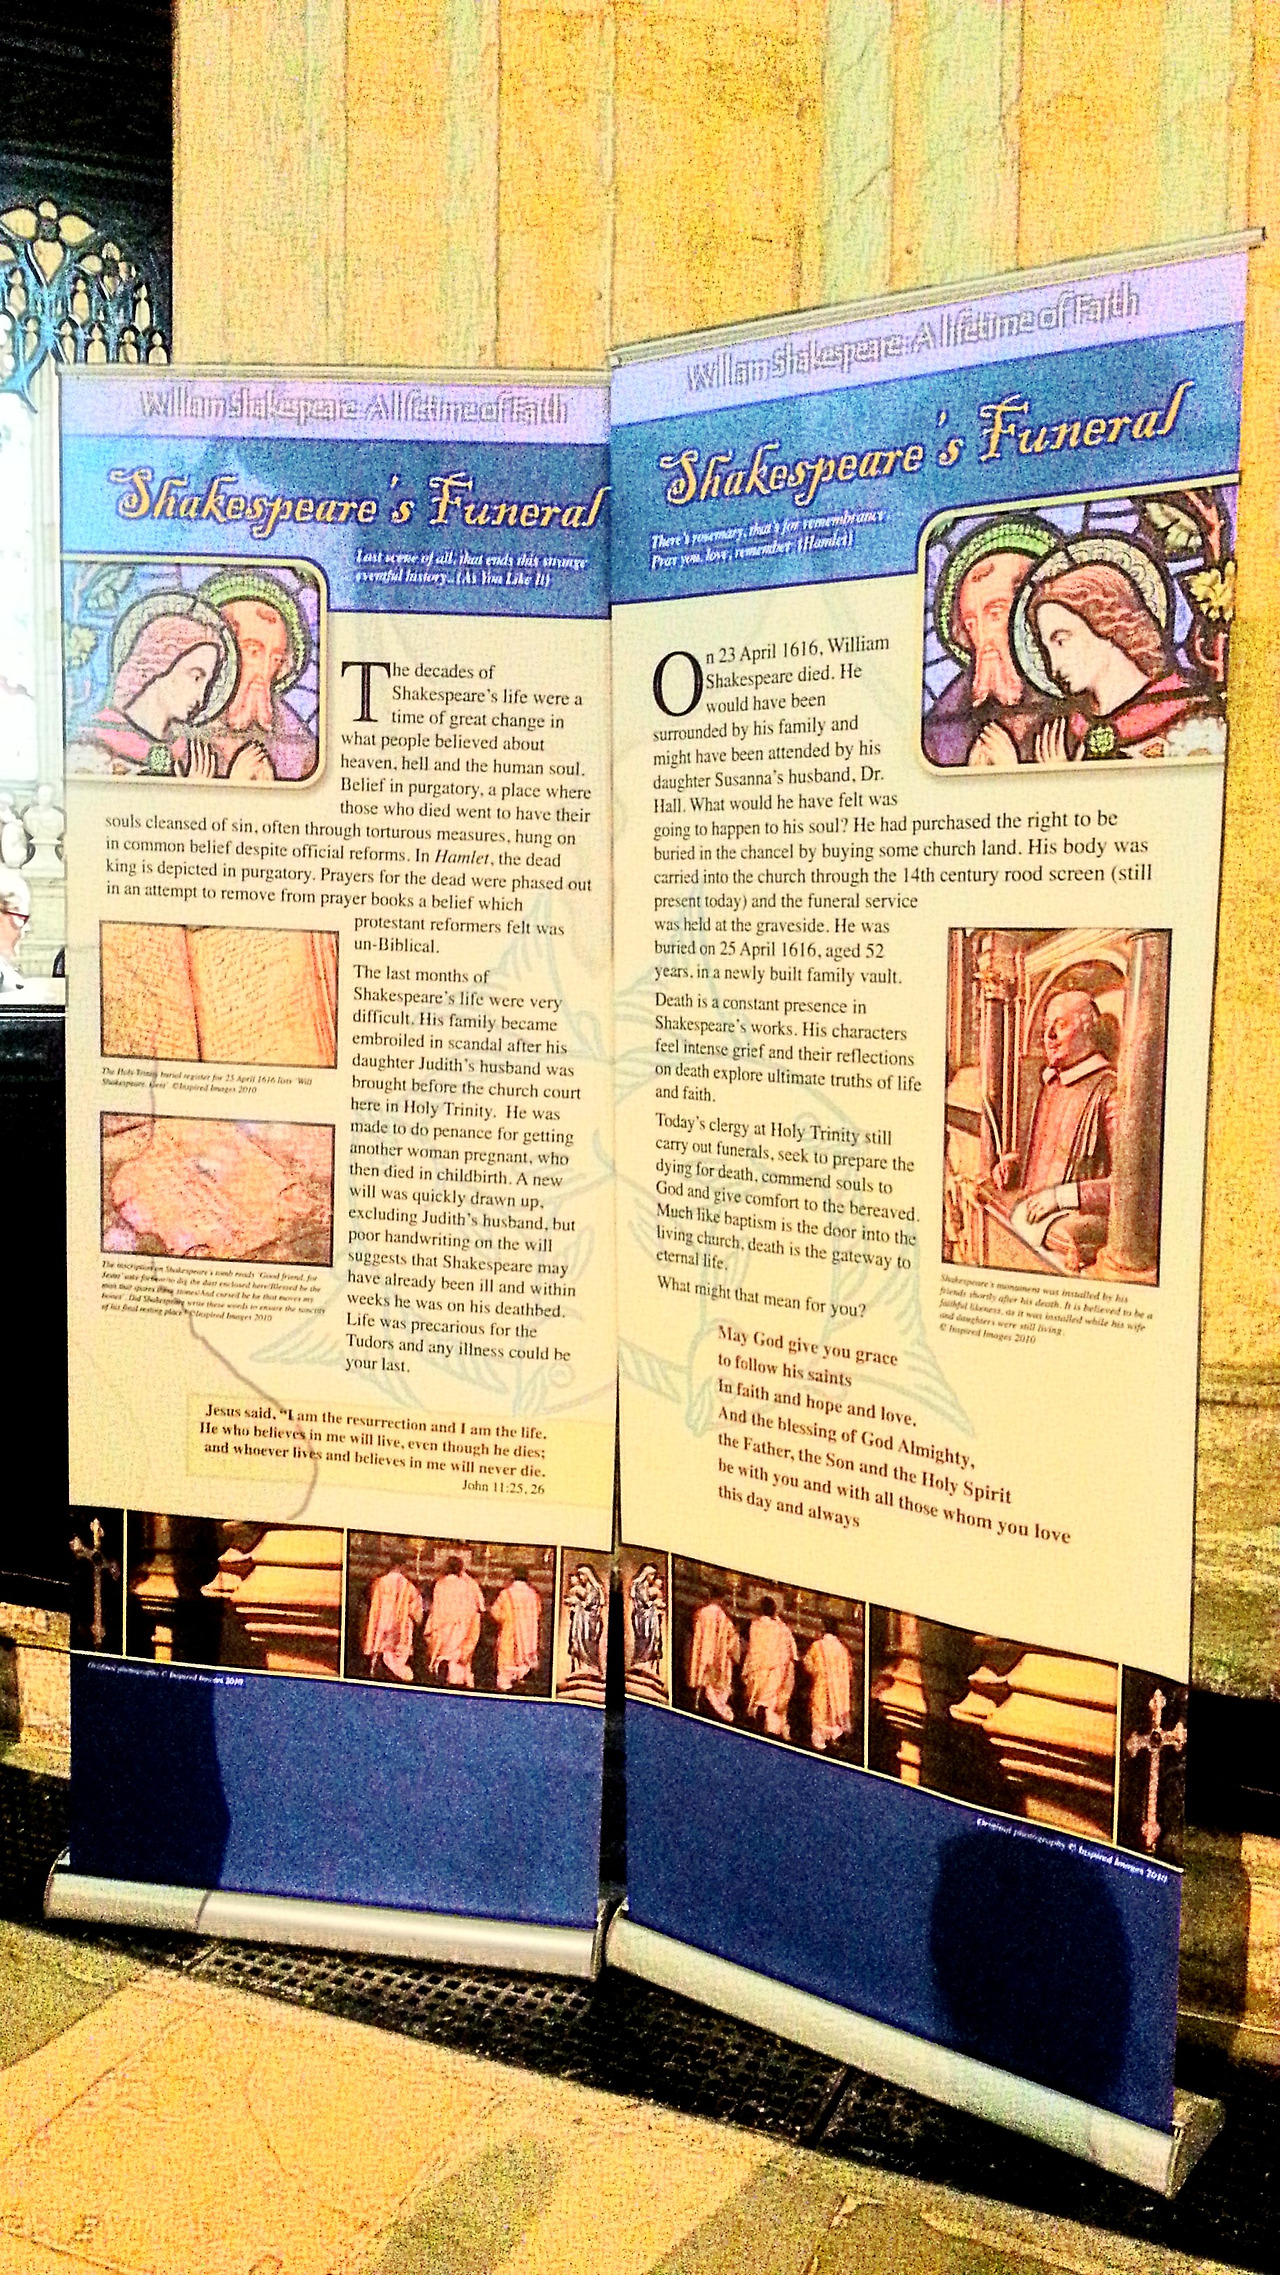 William Shakespeare: A lifetime of Faith
Shakespeare's Funeral
Last scene of all, that ends this strange
eventful history.. (As You Like It)
The decades of
Shakespeare's life were a
time of great change in
what people believed about
heaven, hell and the human soul.
Belief in purgatory, a place where
those who died went to have their
souls cleansed of sin, often through torturous measures, hung on
in common belief despite official reforms. In Hamlet, the dead
king is depicted in purgatory. Prayers for the dead were phased out
in an attempt to remove from prayer books a belief which
protestant reformers felt was
un-Biblical.
The last months of
Shakespeare's life were very
difficult. His family became
embroiled in scandal after his
daughter Judith's husband was
brought before the church court
here in Holy Trinity. He was
made to do penance for getting
another woman pregnant, who
then died in childbirth. A new
will was quickly drawn up,
excluding Judith's husband, but
poor handwriting on the will
suggests that Shakespeare may
have already been ill and within
weeks he was on his deathbed.
Life was precarious for the
Tudors and any illness could be
your last.
The Holy Trinity burial register for 25 April 1616 lists 'Will
Shakespeare, Gent' ©Inspired Images 2010
The inscription on Shakespeare's tomb reads 'Good friend, for
Jesus' sake forbear/to dig the dust enclosed here/Blessed be the
man that spares these stones/And cursed be he that moves my
bones'. Did Shakespeare write these words to ensure the sanctity
of his final resting place? ©Inspired Images 2010
Jesus said, "I am the resurrection and I am the life.
He who believes in me will live, even though he dies;
and whoever lives and believes in me will never die.
John 11:25, 26
Original photography © Inspired Images 2010
William Shakespeare: A lifetime of Faith
Shakespeare's Funeral
There's rosemary, that's for remembrance.
Pray you, love, remember (Hamlet)
On 23 April 1616, William
Shakespeare died. He
would have been
surrounded by his family and
might have been attended by his
daughter Susanna's husband, Dr.
Hall. What would he have felt was
going to happen to his soul? He had purchased the right to be
buried in the chancel by buying some church land. His body was
carried into the church through the 14th century rood screen (still
present today) and the funeral service
was held at the graveside. He was
buried on 25 April 1616, aged 52
years, in a newly built family vault.
Death is a constant presence in
Shakespeare's works. His characters
feel intense grief and their reflections
on death explore ultimate truths of life
and faith.
Today's clergy at Holy Trinity still
carry out funerals, seek to prepare the
dying for death, commend souls to
God and give comfort to the bereaved.
Much like baptism is the door into the
living church, death is the gateway to
eternal life.
What might that mean for you?
Shakespeare's monument was installed by his
friends shortly after his death. It is believed to be a
faithful likeness, as it was installed while his wife
and daughters were still living.
© Inspired Images 2010
May God give you grace
to follow his saints
In faith and hope and love,
And the blessing of God Almighty,
the Father, the Son and the Holy Spirit
be with you and with all those whom you love
this day and always
Original photography © Inspired Images 2010